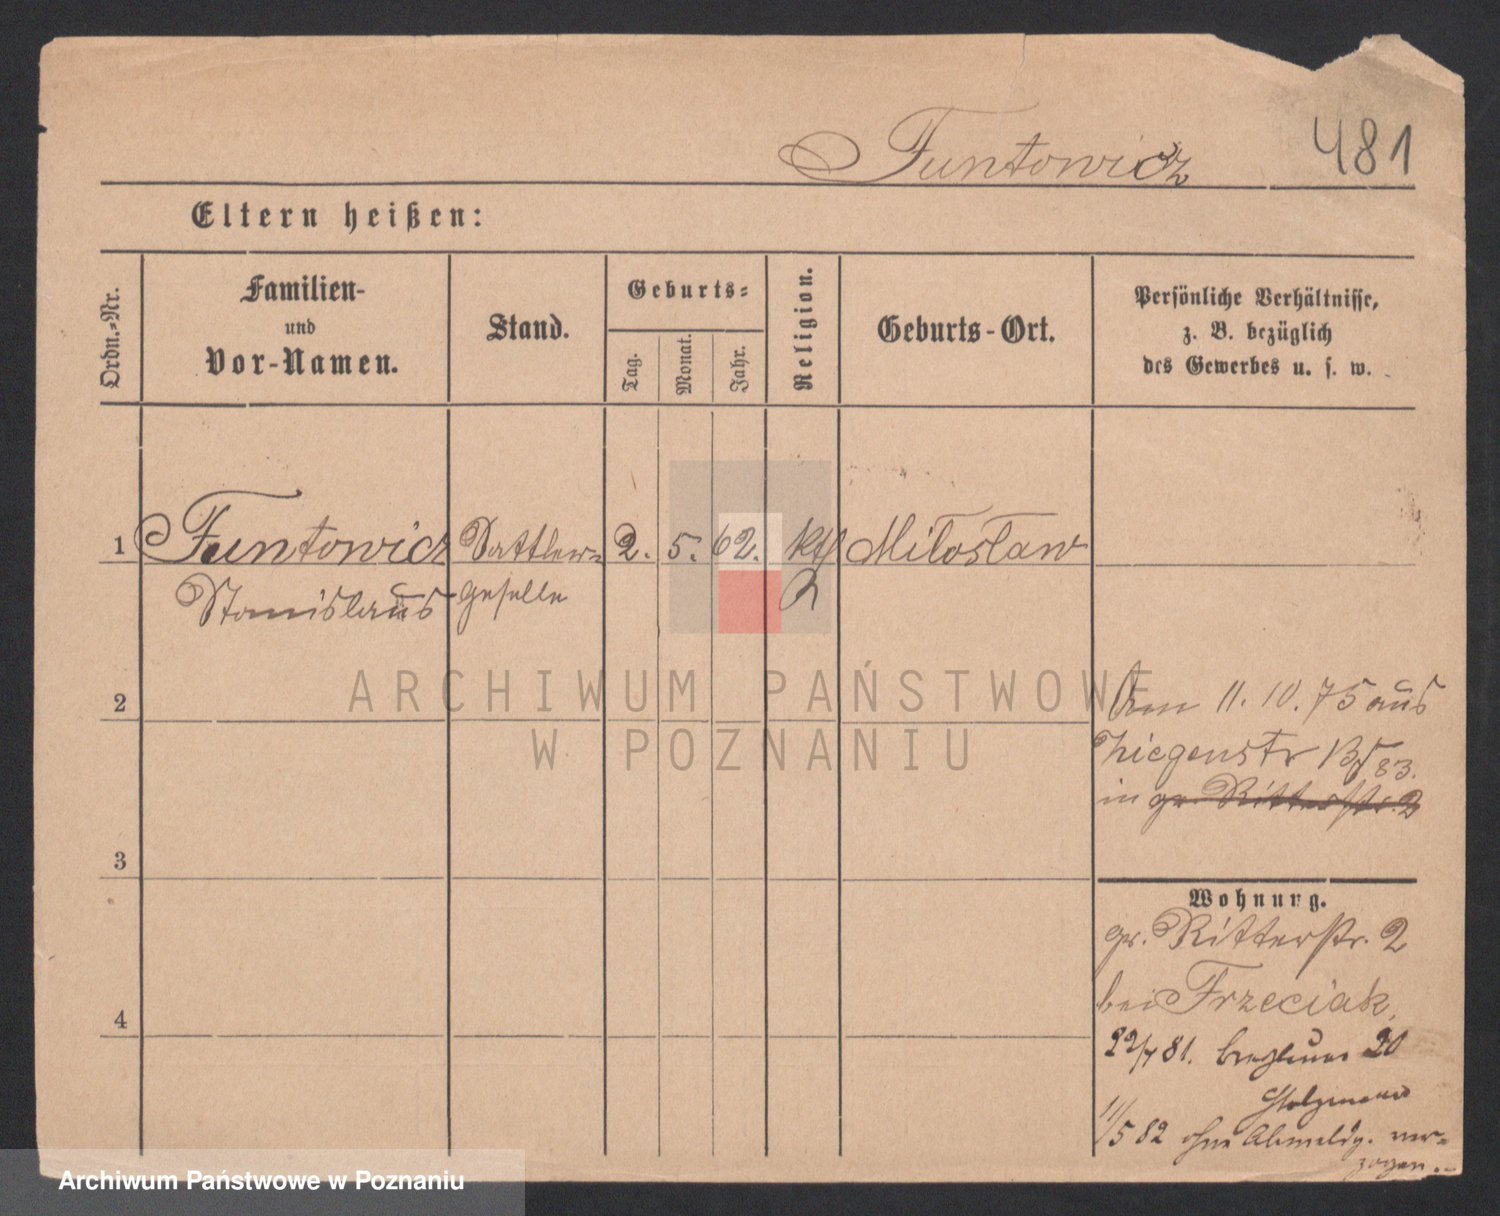 Funtowicz 481
Eltern heißen:
Ordn.-Nr.
Familien-
und
Vor-Namen.
Stand.
Geburts-
Tag.
Monat.
Jahr.
Religion.
Geburts-Ort.
Persönliche Verhältnisse,
z. B. bezüglich
des Gewerbes u. s. w.
1 Funtowicz Sattler- 2. 5. 62. kth Miloslaw
Stanislaus geselle
2
Am 11. 10. 75 aus
Ziegenstr
in gr. Ritterstr. 2
3
Wohnung.
gr. Ritterstr. 2
bei Frzeciak,
4
22/7 81. Breslauer 20
11/5 82 ohne Abmeldg. ver-
zogen.
ARCHIWUM PAŃSTWOWE
W POZNANIU
Archiwum Państwowe w Poznaniu